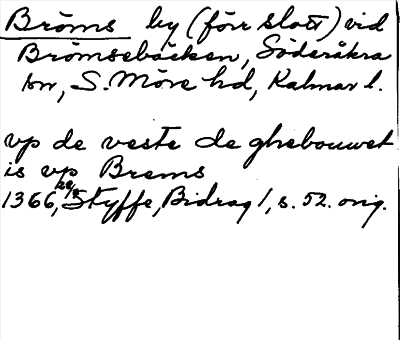 Bröms by (förr slott) vid
Brömsebäcken, Söderåkra
sn, S. Möre hd, Kalmar l.
vp de veste de ghebouwet
is vp Brems
1366 28/8, Styffe, Bidrag 1, s. 52. orig.